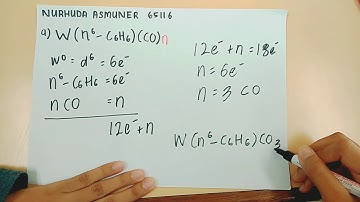 NURHUDA ASMUNER 65116
a) W(η⁶-C₆H₆)(CO)n
W⁰ = d⁶ = 6e⁻
η⁶-C₆H₆ = 6e⁻
nCO = n
12e⁻+n
12e⁻+n = 18e⁻
n = 6e⁻
n = 3 CO
W(η⁶-C₆H₆)CO₃